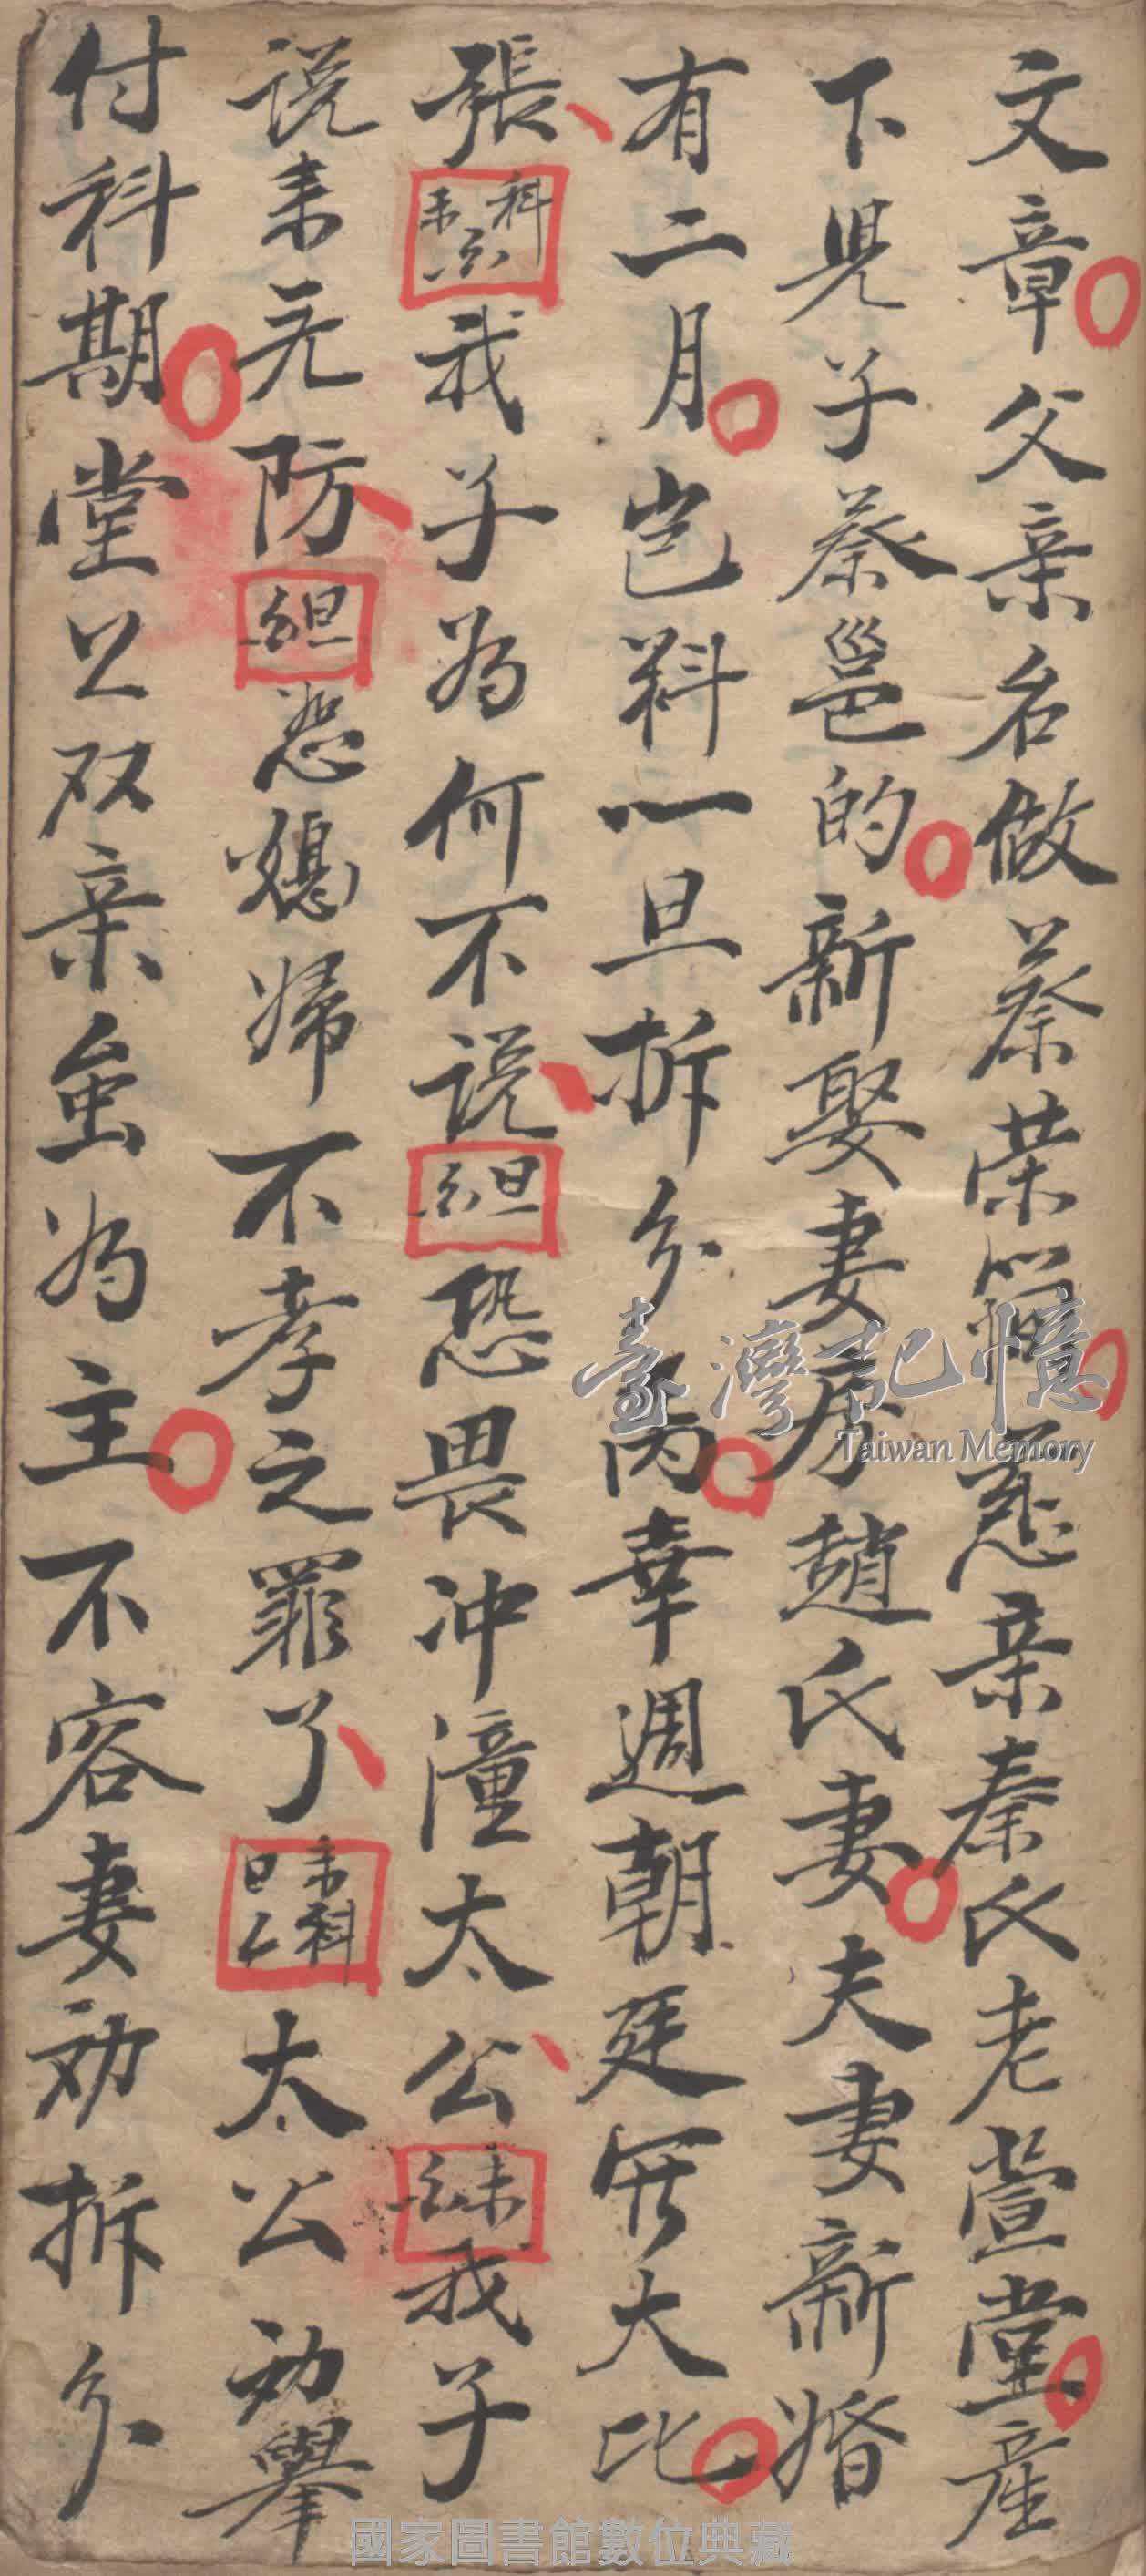 文章父亲名做蔡荣 慈亲秦氏老萱堂産
下児子蔡邕的新娶妻房趙氏妻夫妻新婚
有二月岂料一旦拆分两幸週朝廷開大比
張科末白我子为何不说旦白恐畏冲潼太公末白我子
说来无防旦白恕媳婦不孝之罪了末科太公劝舉
付科期堂上双亲虽为主不容妻劝拆分
臺灣記憶
Taiwan Memory
國家圖書館數位典藏